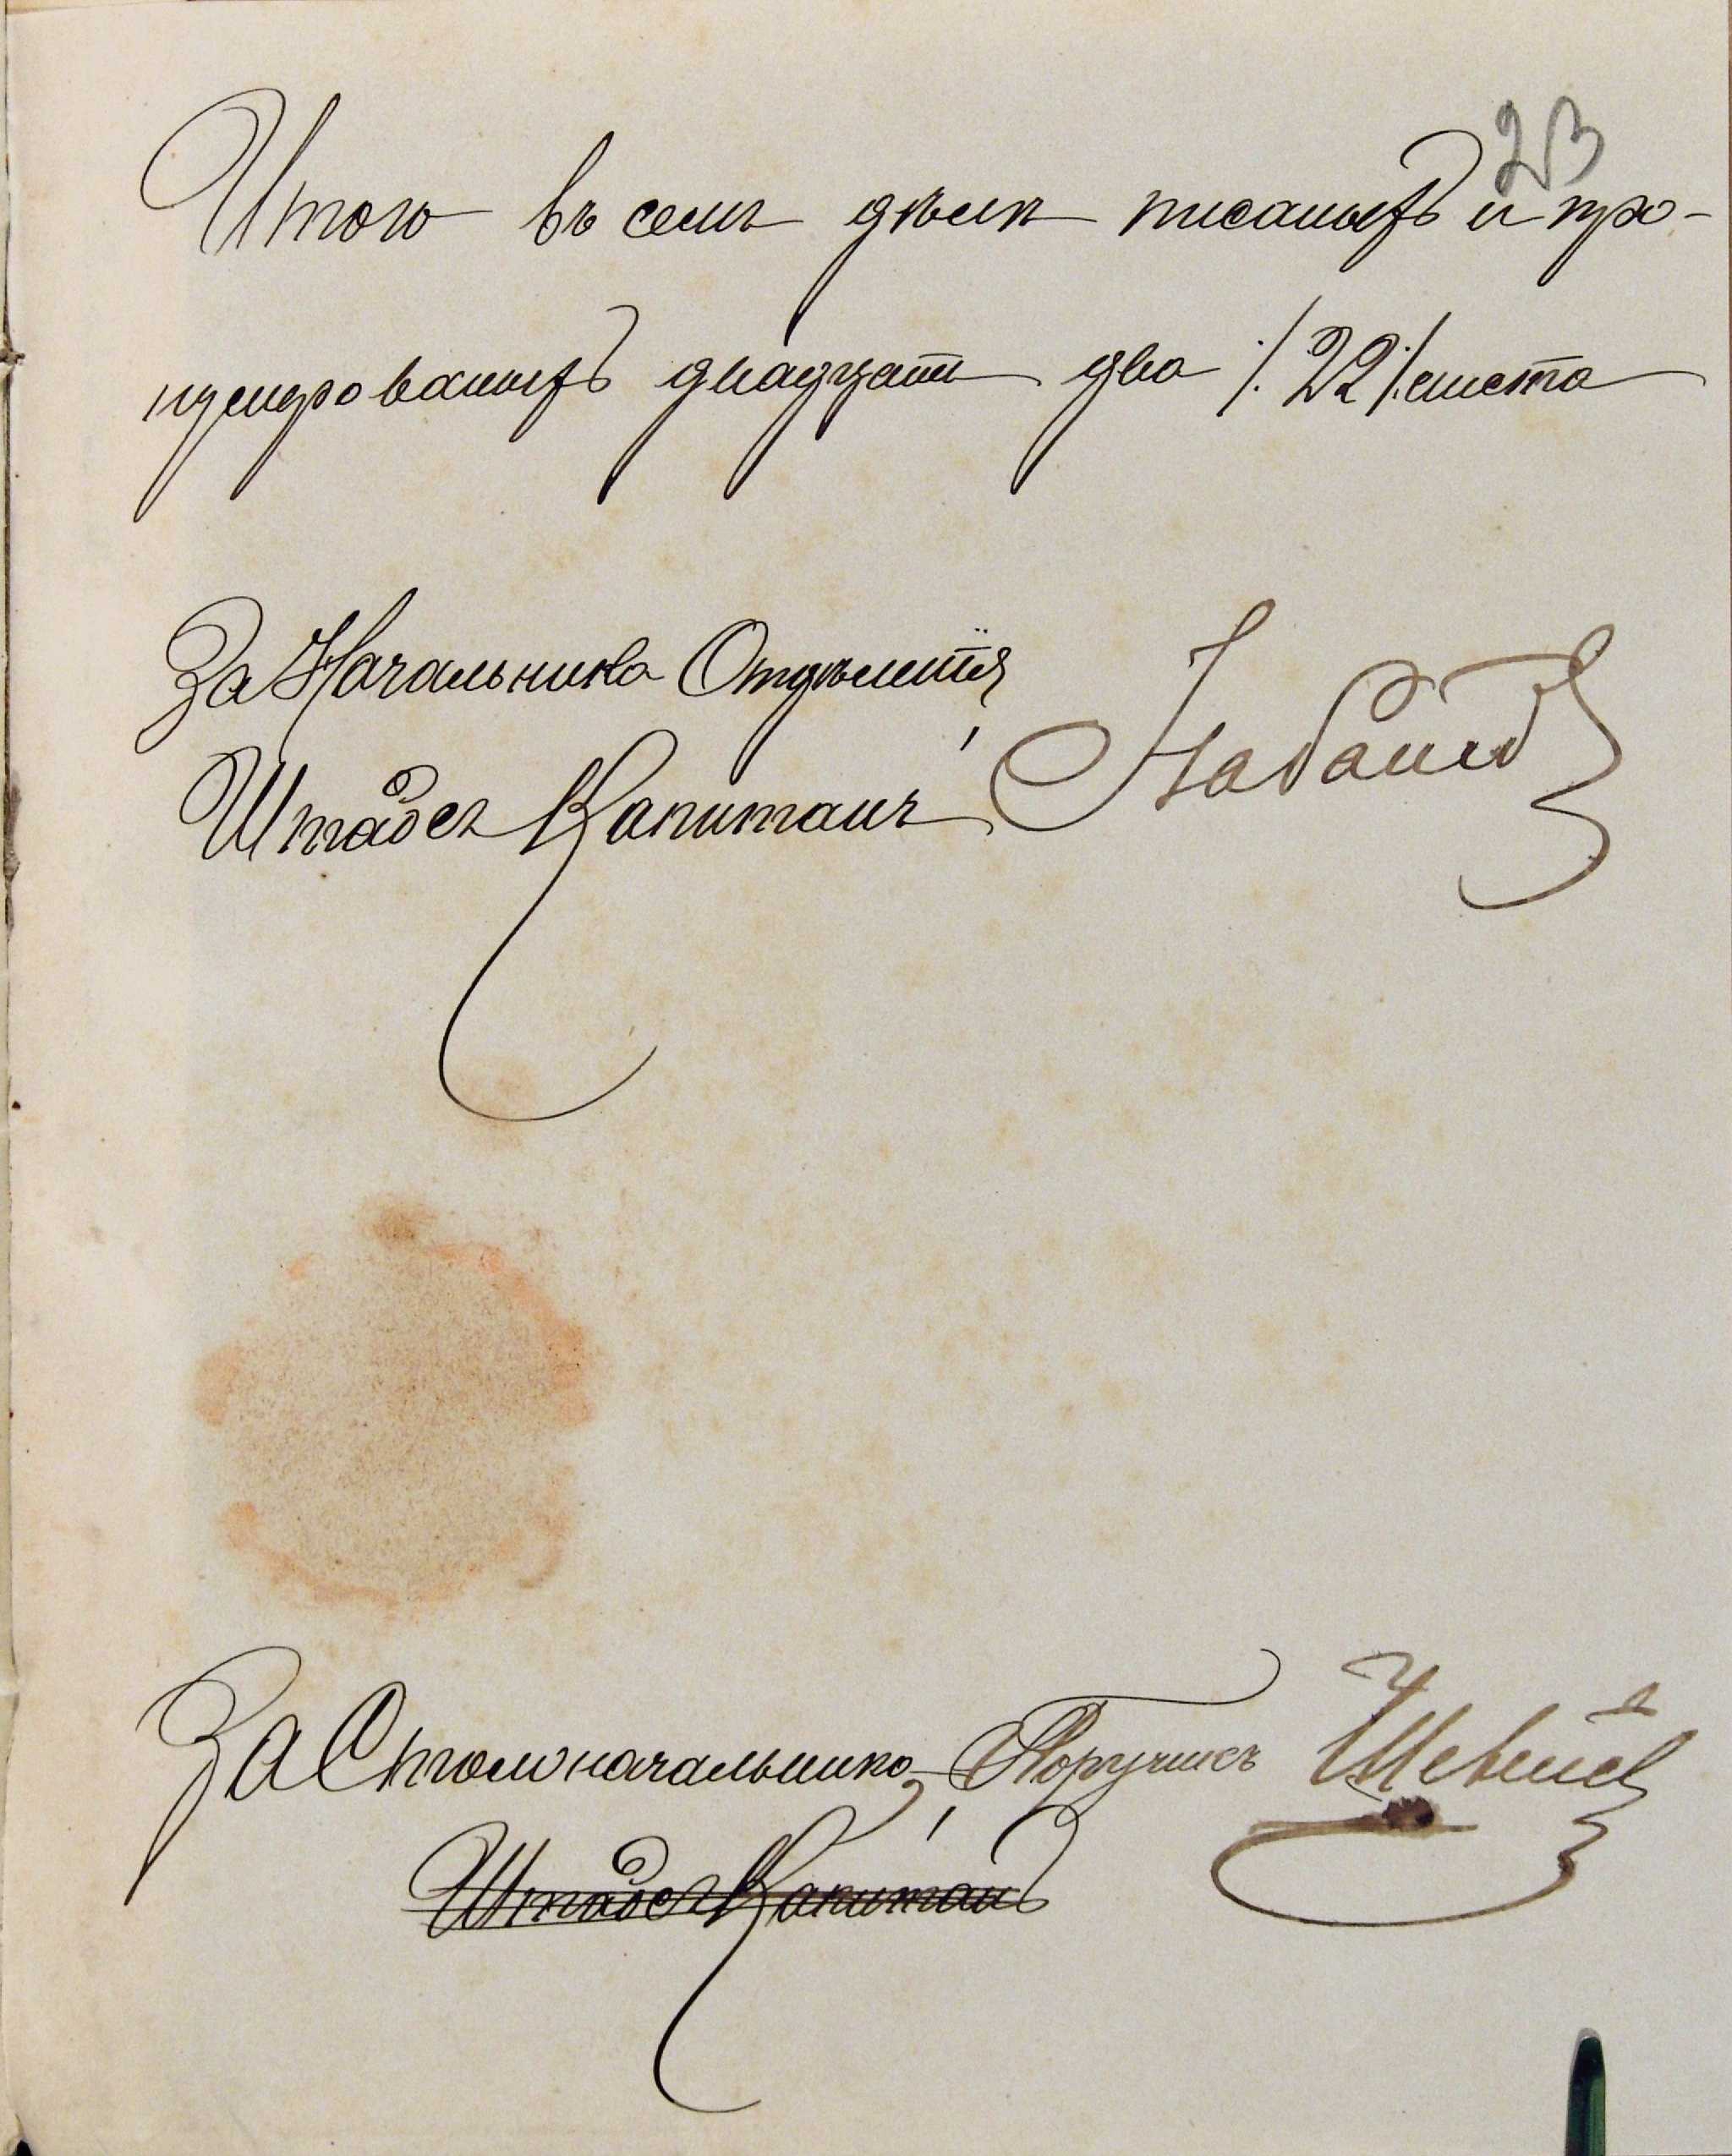 23
Итого въ семъ дѣлѣ писаныхъ и про-
нумерованыхъ двадцать два /. 22 /. листа
За Начальника Отдѣленія,
Штабсъ Капитанъ
За Столоначальника, Поручикъ
Штабсъ Капитанъ